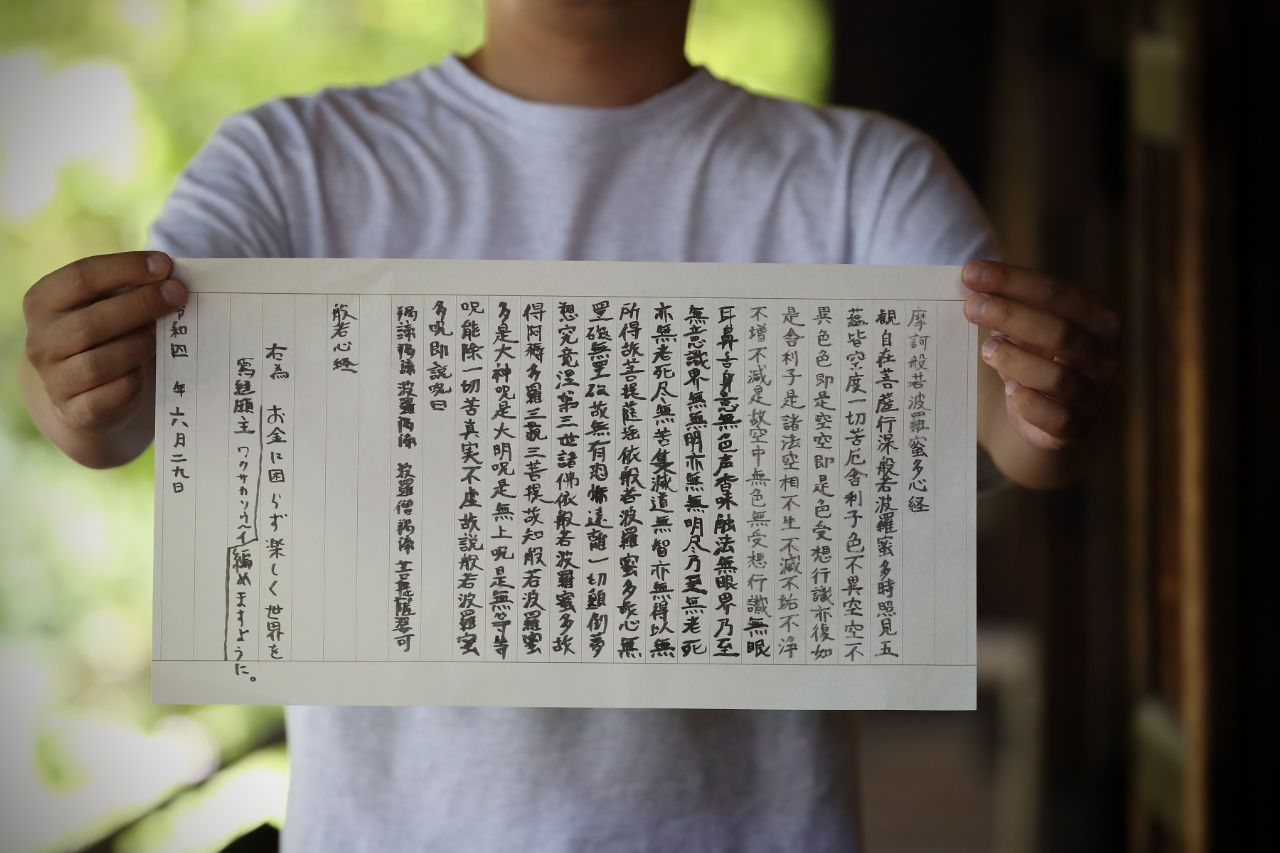 摩訶般若波羅蜜多心経
観自在菩薩行深般若波羅蜜多時照見五
蘊皆空度一切苦厄舎利子色不異空空不
異色色即是空空即是色受想行識亦復如
是舎利子是諸法空相不生不滅不垢不浄
不増不減是故空中無色無受想行識無眼
耳鼻舌身意無色声香味触法無眼界乃至
無意識界無無明亦無無明尽乃至無老死
亦無老死尽無苦集滅道無智亦無得以無
所得故菩提薩埵依般若波羅蜜多故心無
罣礙無罣礙故無有恐怖遠離一切顛倒夢
想究竟涅槃三世諸佛依般若波羅蜜多故
得阿耨多羅三藐三菩提故知般若波羅蜜
多是大神呪是大明呪是無上呪是無等等
呪能除一切苦真実不虚故説般若波羅蜜
多呪即説呪曰
羯諦羯諦 波羅羯諦 波羅僧羯諦 菩提薩婆可
般若心経
右為 お金に困らず楽しく世界を
寫経願主 ワクサカソウヘイ 編めますように。
令和四 年 六月二九日